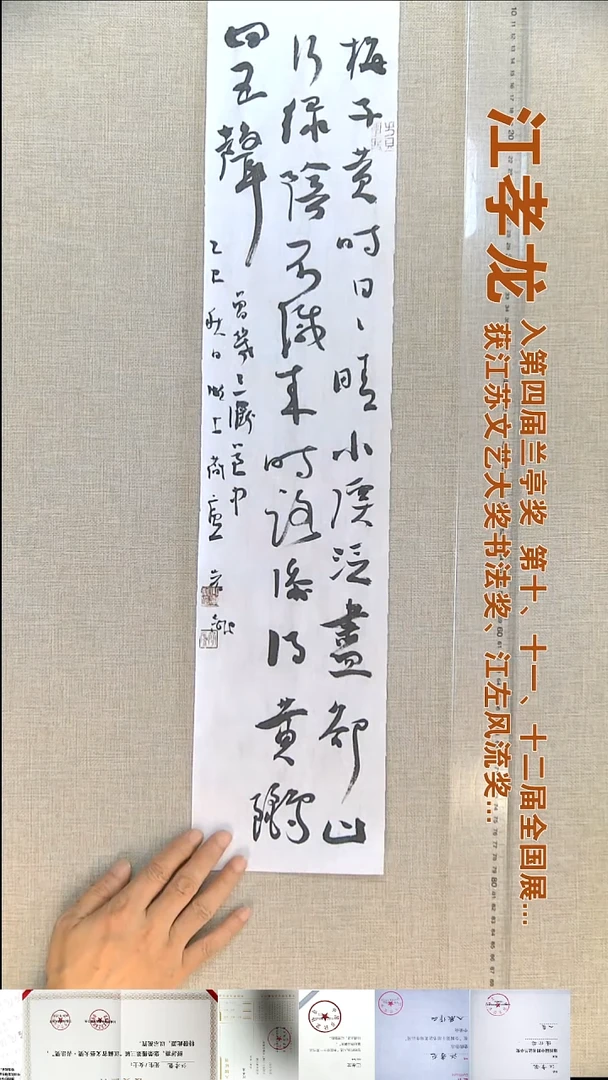 江孝龙
入第四届兰亭奖 第十、十一、十二届全国展...
获江苏文艺大奖书法奖、江左风流奖...
梅子黄时日〻晴小溪泛盡卻山
行绿陰不减来时路添得黄鹂
四五聲
曾幾三衢道中
乙巳秋日湖上尚廬孝龍